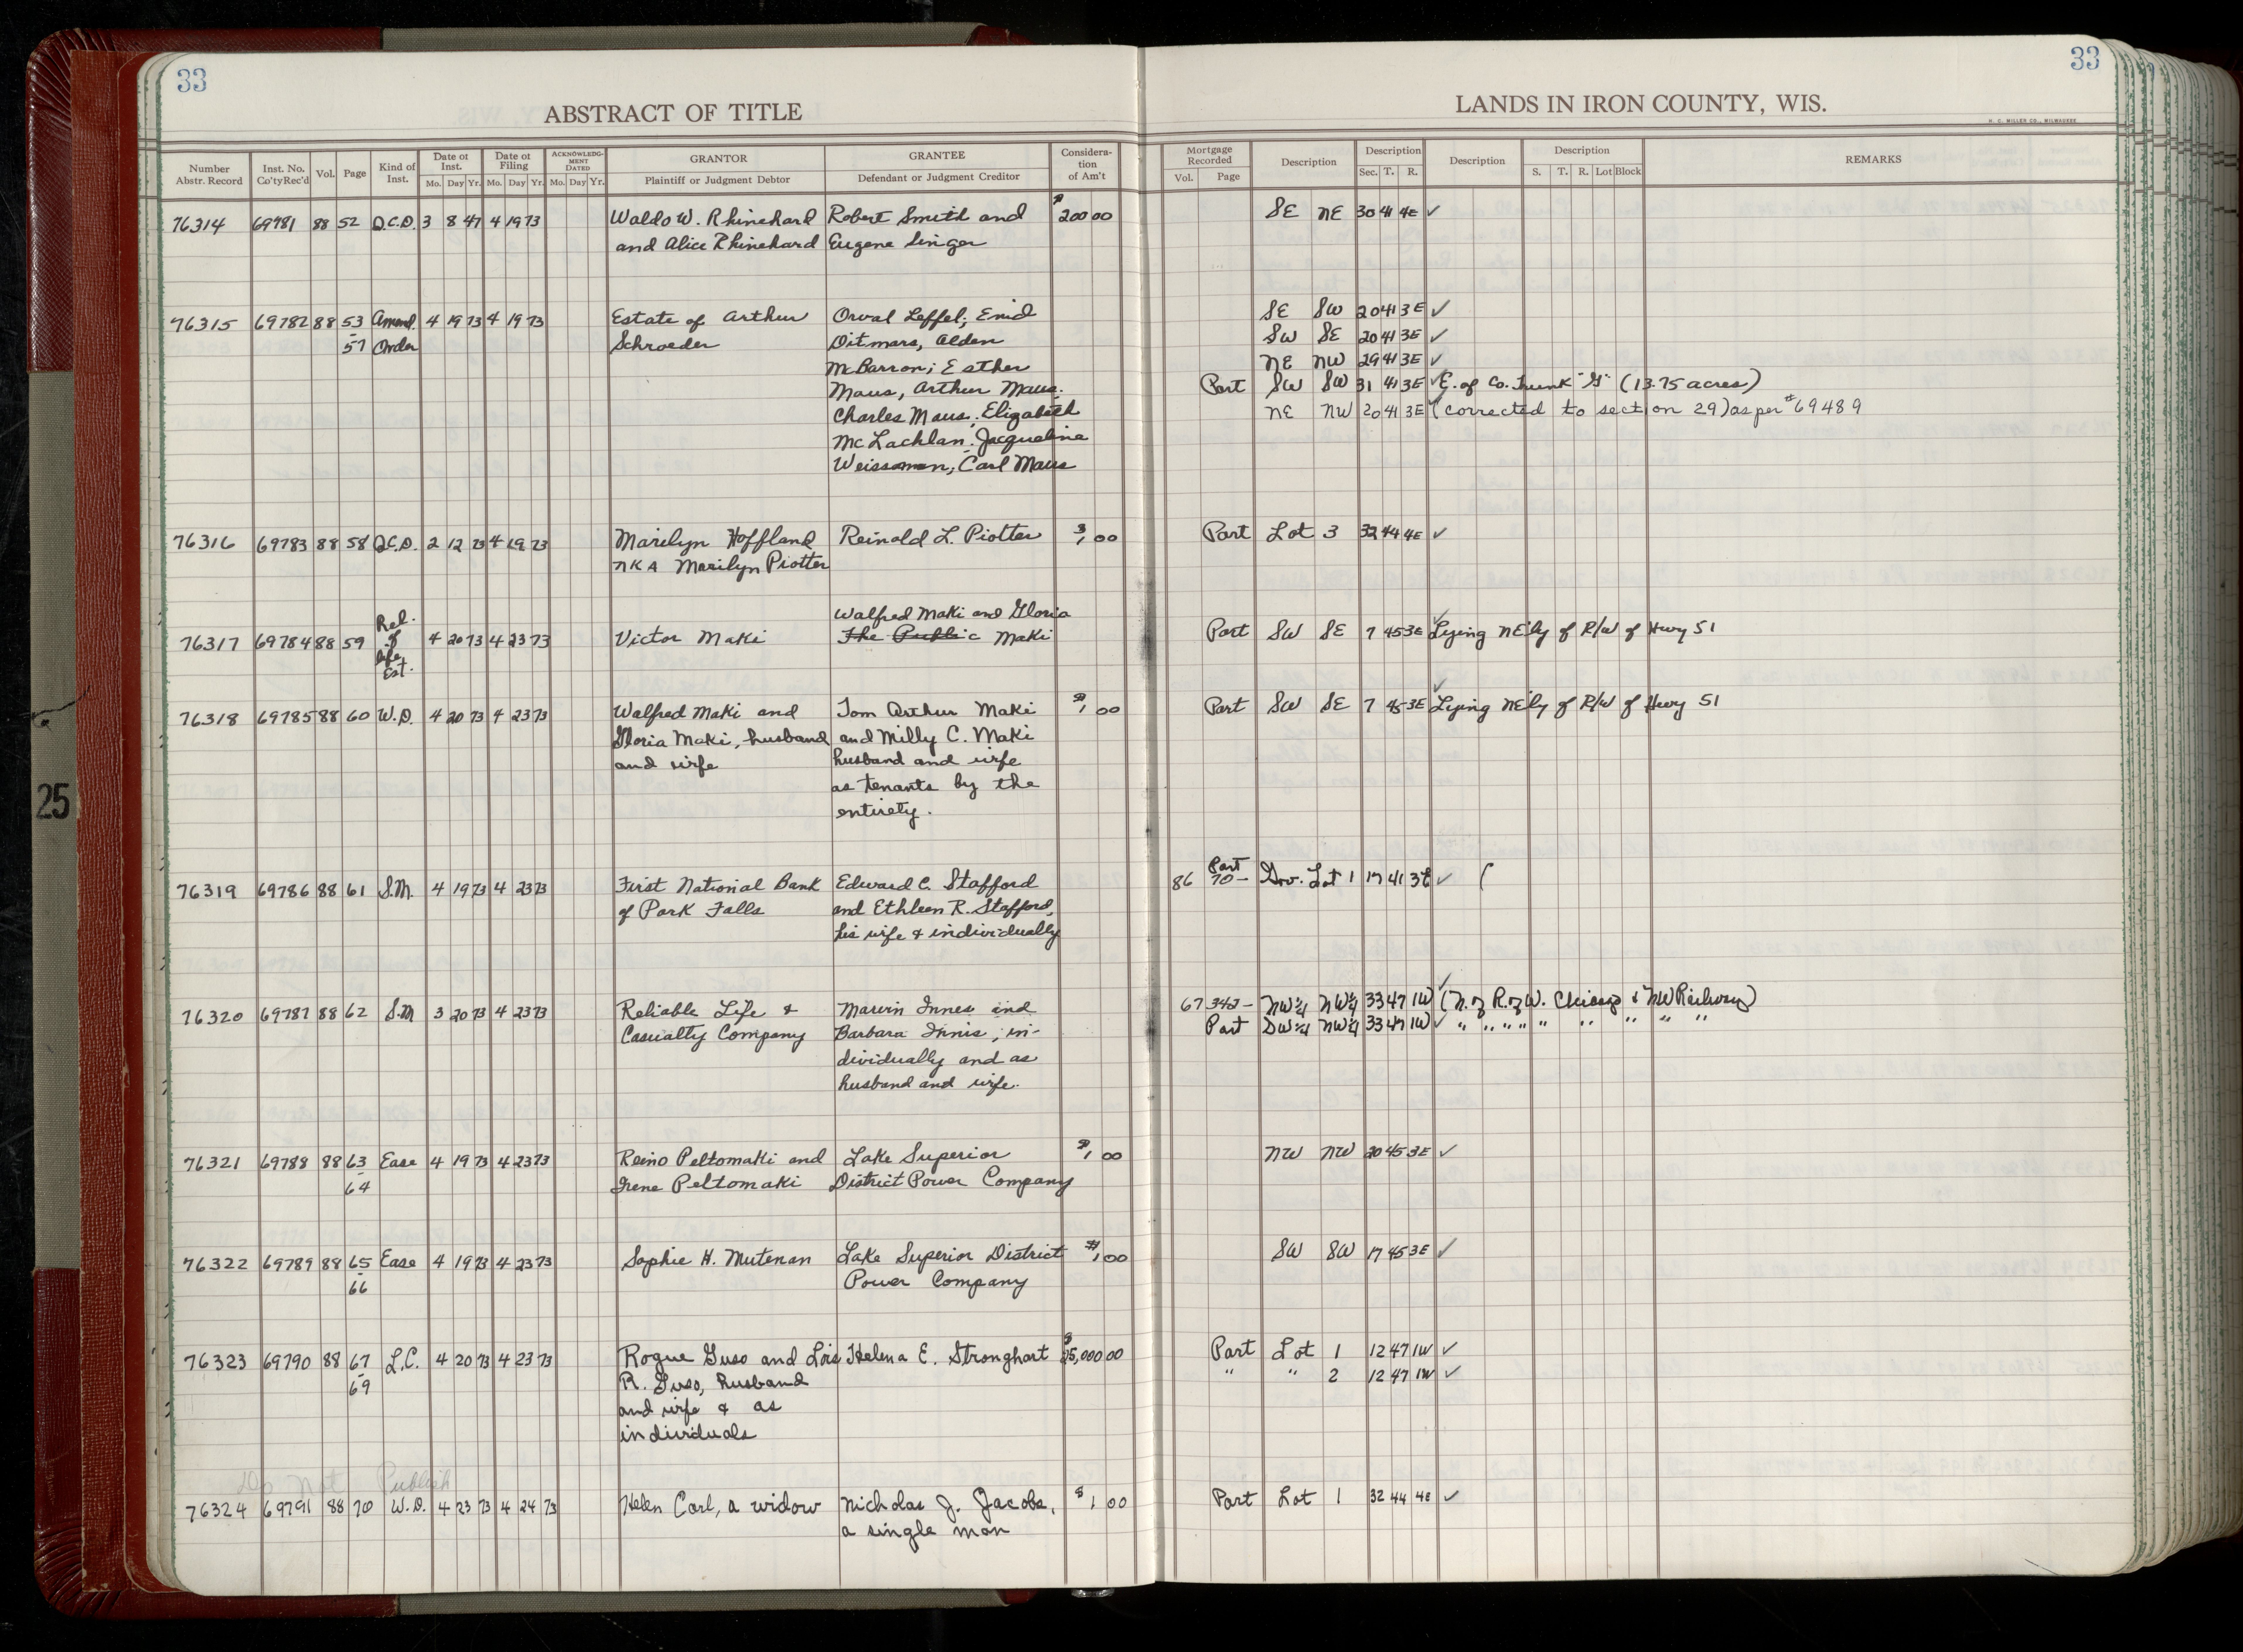 33
33
ABSTRACT OF TITLE
LANDS IN IRON COUNTY, WIS.
H. C. MILLER CO., MILWAUKEE
Number Abstr. Record | Inst. No. Co'ty Rec'd | Vol. | Page | Kind of Inst. | Date of Inst. Mo. Day Yr. | Date of Filing Mo. Day Yr. | ACKNOWLEDGMENT DATED Mo. Day Yr. | GRANTOR Plaintiff or Judgment Debtor | GRANTEE Defendant or Judgment Creditor | Consideration of Am't | Mortgage Recorded Vol. Page | Description | Description Sec. T. R. | Description | Description S. T. R. Lot Block | REMARKS
76314 69781 88 52 Q.C.D. 3 8 47 4 19 73 Waldo W. Rhinehard Robert Smith and $200 00 SE NE 30 41 4E ✓
and Alice Rhinehard Eugene Singer
76315 69782 88 53 Amend. 4 19 73 4 19 73 Estate of Arthur Orval Leffel; Enid SE SW 20 41 3E ✓
- 57 Order Schroeder Ditmars, Alden SW SE 20 41 3E ✓
McBarron; Esther NE NW 29 41 3E ✓
Maus, Arthur Maus. Part SW SW 31 41 3E ✓ E. of Co. Trunk "G" (13.75 acres)
Charles Maus; Elizabeth NE NW 20 41 3E ✓ (corrected to section 29) as per #69489
McLachlan. Jacqueline
Weissman; Carl Maus
76316 69783 88 58 Q.C.D. 2 12 73 4 19 73 Marilyn Hoffland Reinold L. Piotter $1,00 Part Lot 3 32 44 4E ✓
NKA Marilyn Piotter
Rel. Walfred Maki and Gloria
76317 69784 88 59 of 4 20 73 4 23 73 Victor Maki The Public Maki Part SW SE 7 45 3E ✓ Lying NEly of R/W of Hwy 51
life
Est.
76318 69785 88 60 W.D. 4 20 73 4 23 73 Walfred Maki and Tom Arthur Maki $1,00 Part SW SE 7 45 3E ✓ Lying NEly of R/W of Hwy 51
Gloria Maki, husband and Milly C. Maki
and wife husband and wife
as tenants by the
entirety.
Part
76319 69786 88 61 S.M. 4 19 73 4 23 73 First National Bank Edward C. Stafford 86 70- Gov. Lot 1 17 41 3E ✓ (
of Park Falls and Ethleen R. Stafford,
his wife & individually
76320 69787 88 62 S.M 3 20 73 4 23 73 Reliable Life & Marvin Innes and 67 342- NW¼ NW¼ 33 47 1W ✓ (N. of R. of W. Chicago & NW Railway)
Casualty Company Barbara Innis, in- Part SW¼ NW¼ 33 47 1W ✓ " " " " " " " " "
dividually and as
husband and wife.
76321 69788 88 63 Ease 4 19 73 4 23 73 Reino Peltomaki and Lake Superior $1,00 NW NW 20 45 3E ✓
- 64 Irene Peltomaki District Power Company
76322 69789 88 65 Ease 4 19 73 4 23 73 Sophie H. Mutenan Lake Superior District $1,00 SW SW 17 45 3E ✓
- 66 Power Company
76323 69790 88 67 L.C. 4 20 73 4 23 73 Rogue Guso and Lois Helena E. Stronghart $25,000 00 Part Lot 1 12 47 1W ✓
- 69 R. Guso, husband " " 2 12 47 1W ✓
and wife & as
individuals
Do Not Publish
76324 69791 88 70 W.D. 4 23 73 4 24 73 Helen Carl, a widow Nicholas J. Jacobs, $1,00 Part Lot 1 32 44 4E ✓
a single man
25